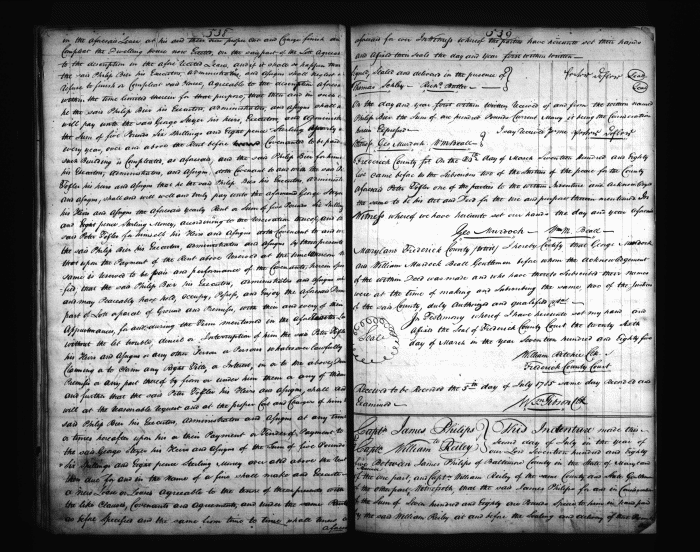 538
in the aforesaid Lease at his and their own proper Cost and Charge finish and
Compleat the Dwelling house now Erected, on the said part of the Lott Agreeable
to the description in the afore recited Lease, and if it shall so happen that
the said Philip Bier his Executors, Administrators, and Assigns shall neglect or
refuse to finish or Compleat said house, agreeable to the description aforesaid
within the time limited therein for that purpose, that then and in such case
he the said Philip Bier his Executors, Administrators, and Assigns shall and
will pay unto the said George his heirs, Executors, and Administrators
the Sum of five Pounds Six Shillings and Eight pence Sterling
every year, over and above the Rent before Covenanted to be paid
such Building is Compleated, as aforesaid, and the said Philip Bier for himself
his Executors, Administrators, and Assigns, doth Covenant to and with the said Peter
his heirs and Assigns that he the said Philip Bier his Executors, Administrators
and Assigns, shall and will well and truly pay unto the aforesaid George
his Heirs and Assigns the aforesaid yearly Rent a Sum of five Pounds Six Shillings
and Eight pence Sterling Money, according to the Reservation thereof, and
said Peter for himself his Heirs and Assigns doth Covenant to and with
the said Philip Bier his Executors, Administrators and Assigns by these presents
that upon the Payment of the Rent above Reserved at the time
same is reserved to be paid and performance of the Covenants herein
that the said Philip Bier his Executors, Administrators and Assigns
and may Peaceably have hold, Occupy, Possess, and Enjoy the aforesaid
part of Lott a parcel of Ground and Premises, with their and every of their
Appurtenances, for and during the Term mentioned in the
without the let trouble, denial or Interruption of him the said Peter
his Heirs and Assigns or any other Person or Persons whatsoever lawfully
Claiming or to Claim any Right Title, or Interest, in or to the above
Premises or any part thereof by from or under him them or any of them
and further that the said Peter his Heirs and Assigns, shall and
will at the reasonable request and at the proper Cost and Charges of him the
said Philip Bier his Executors, Administrators and Assigns at any time
or times hereafter upon his or their Payment or Tender of Payment to
the said George his Heirs and Assigns of the Sum of five Pounds
Six Shillings and Eight pence Sterling Money over and above the Rent
then due for and in the Name of a fine shall make and Execute
a New Lease or Leases Agreeable to the tenor of these presents
the like Clauses, Covenants and Agreements, and under the same Rents
as before Specified and the same from time to time shall
539
aforesaid for ever In Witness whereof the parties have hereunto set their hands
and Affixed their Seals the day and year first within written
Signed, Sealed and delivered in the presence of
Seal
Thomas Richd Butler
Seal
On the day and year first within written Received of and from the within named
Philip Bier the Sum of one hundred Pounds Current Money it being the Consideration
herein Expressed
I say received by me
Witness Geo Murdock Wm M Beall
Frederick County Sct On the day of March Seventeen hundred and Eighty
five came before the Subscribers two of the Justices of the peace for the County
Aforesaid Peter one of the parties to the within Indenture and Acknowledged
the same to be his Act and Deed for the use and purposes therein mentioned In
Witness whereof we have hereunto set our hands the day and year Aforesaid
Geo Murdock Wm M. Beall
Maryland Frederick County I hereby Certify that George Murdock
and William Murdock Beall Gentlemen before whom the Acknowledgment
of the within Deed was made and who have thereto Subscribed their names
were at the time of making and Subscribing the same, two of the Justices
of the said County duly Authorized and qualified
In Testimony whereof I have hereunto set my hand and
Affixed the Seal of Frederick County Court the twenty sixth
day of March in the year Seventeen hundred and Eighty five
Seal
William Ritchie Clk
Frederick County Court
Received to be Recorded the 5th day of July 1785 same day Recorded and
Examined
Wm Gibson Clk
Capt James Philips
to
Capt William Reiley
This Indenture made this
Second day of July in the year of
our Lord Seventeen hundred and Eighty
Between James Philips of Baltimore County in the State of Maryland
of the one part, and Capt William Reiley of the same County and State Gentleman
of the other part, Witnesseth, that the said James Philips for and in Consideration
of the Sum of Seven hundred and Eighty one Pounds Specie to him in hand paid
by the said William Reiley at and before the Sealing and delivery of these